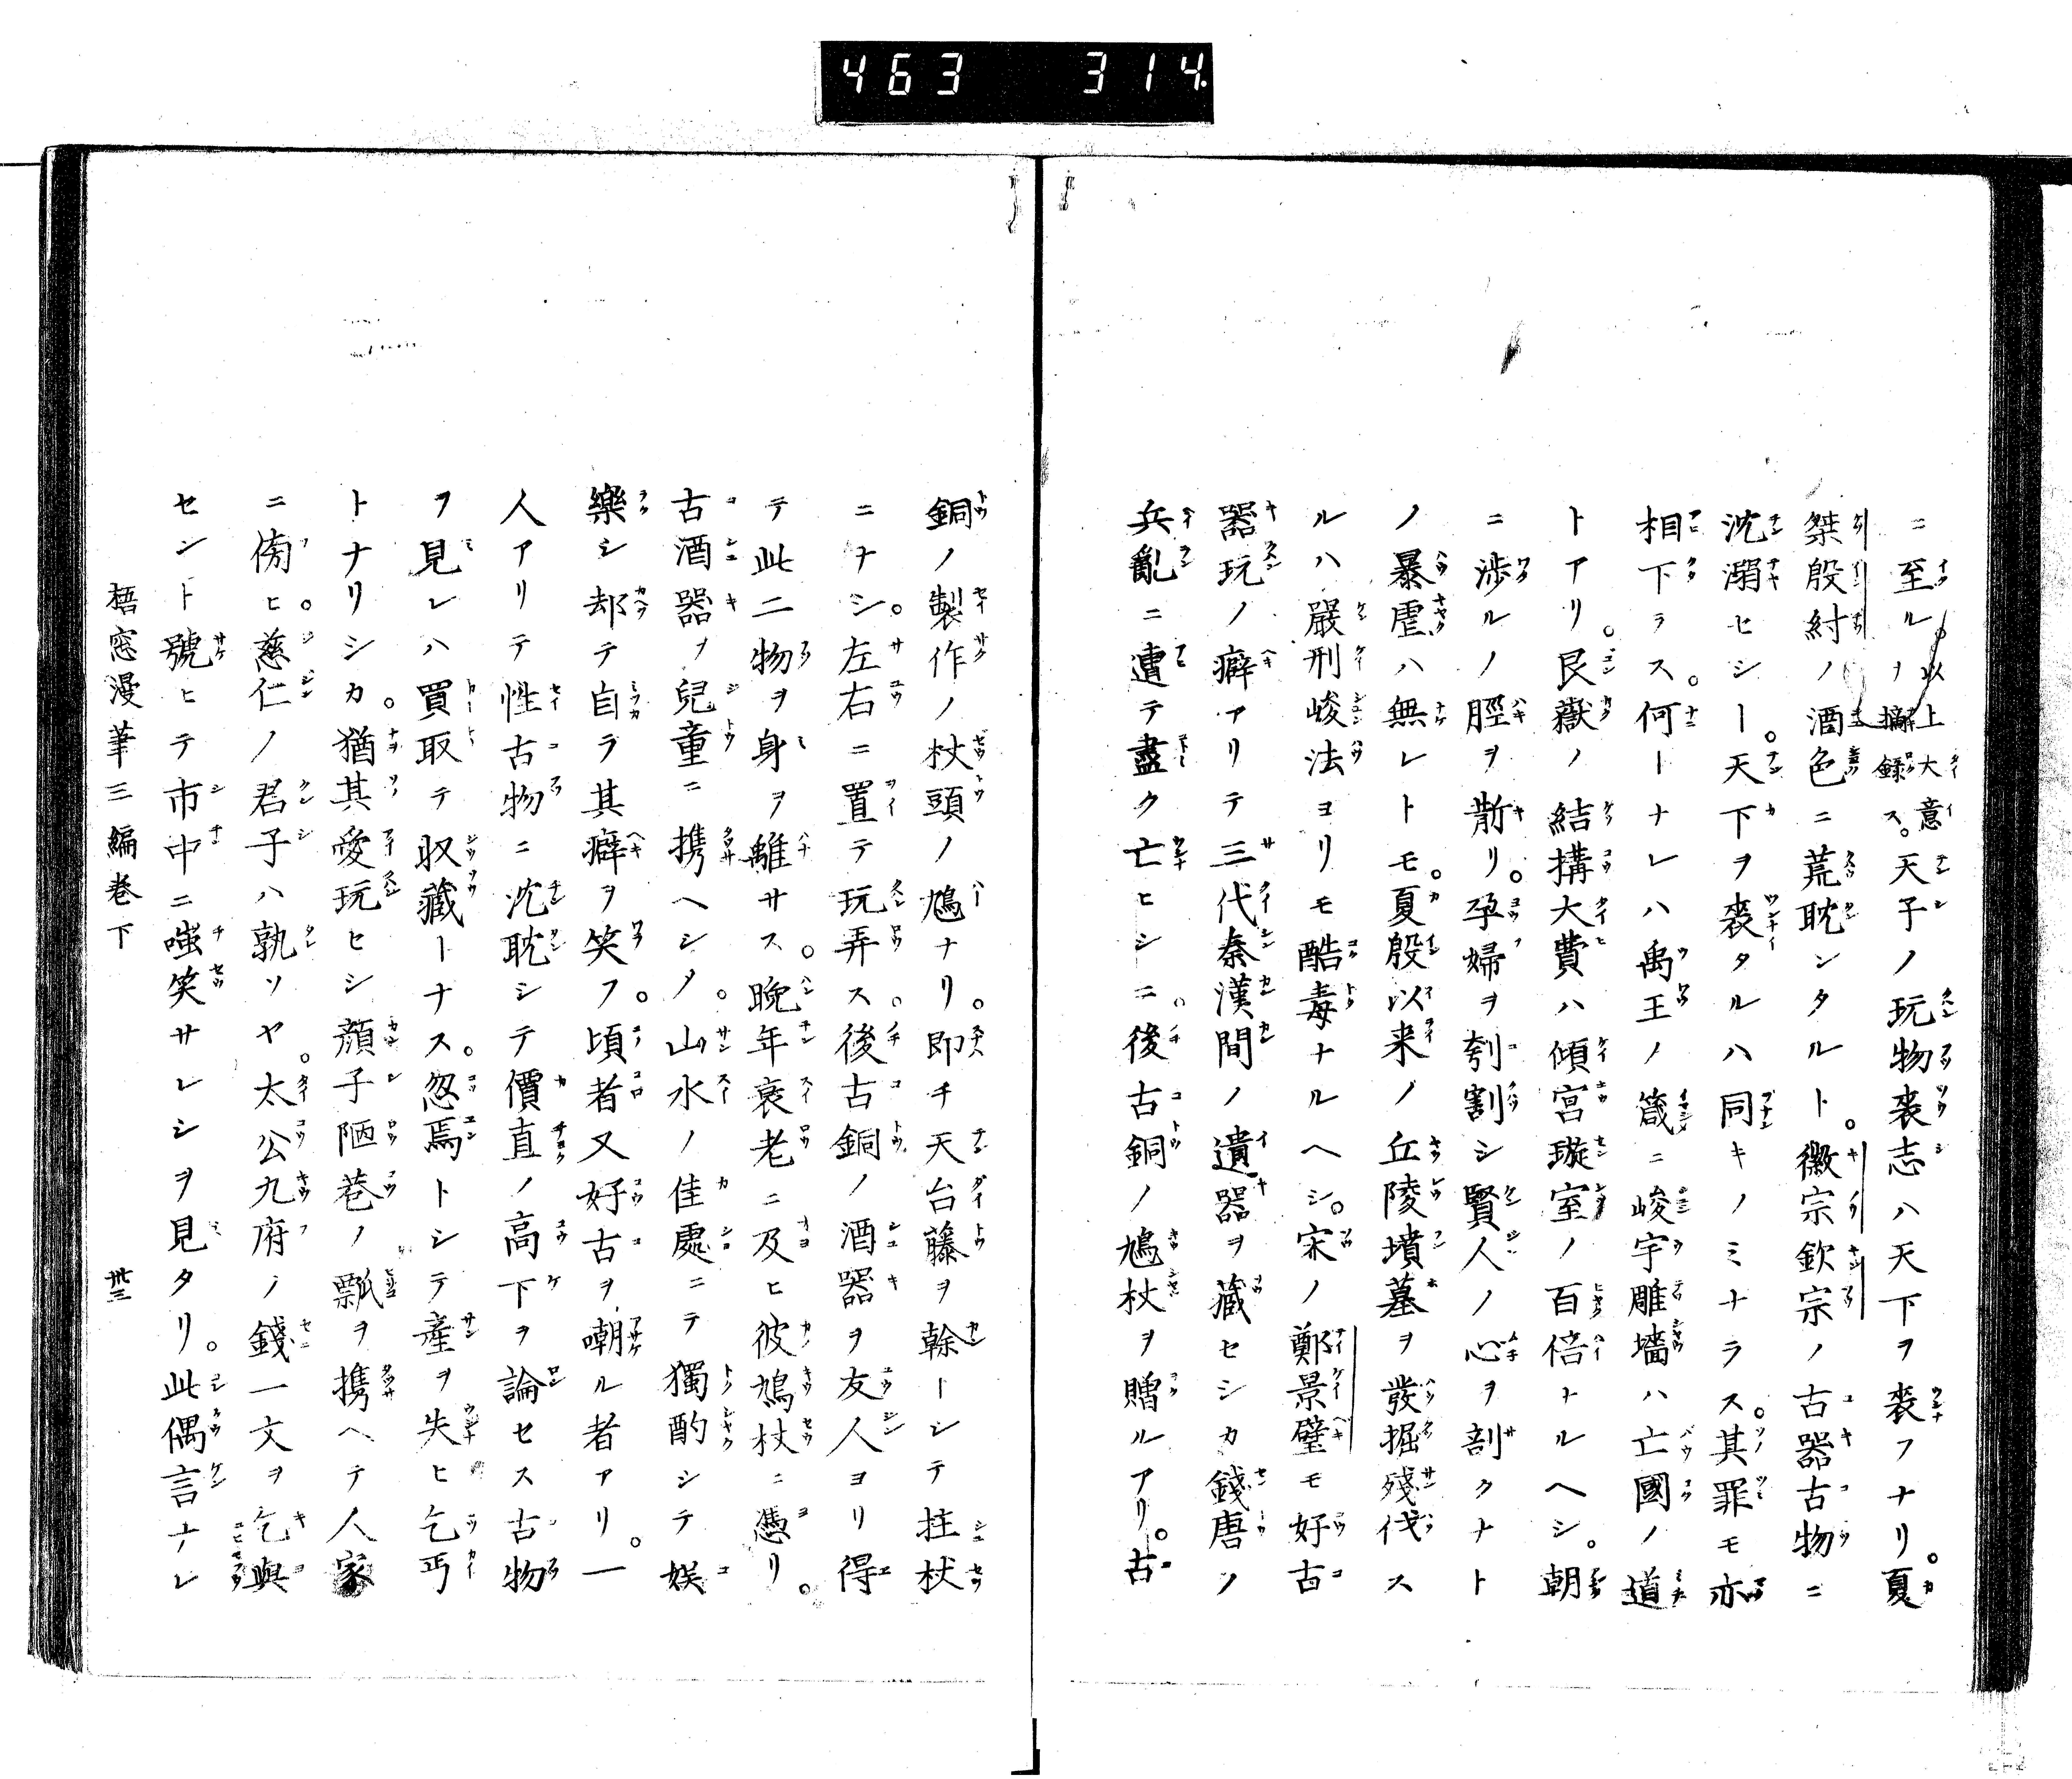 463 314
ニ至ル。以上大意ヲ攟録ス。天子ノ玩物喪志ハ天下ヲ喪フナリ。夏
桀殷紂ノ酒色ニ荒耽ンタルト。徽宗欽宗ノ古器古物ニ
沈溺セシー。天下ヲ喪タルハ同キノミナラス。其罪モ亦
相下ラス。何ーナレハ禹王ノ箴ニ峻宇雕墻ハ亡國ノ道
トアリ。艮嶽ノ結搆大費ハ傾宮璇室ノ百倍ナルヘシ。朝
ニ渉ルノ脛ヲ斮リ。孕婦ヲ刳割シ賢人ノ心ヲ剖クナト
ノ暴虐ハ無レトモ。夏殷以来ノ丘陵墳墓ヲ發掘殘伐ス
ルハ嚴刑峻法ヨリモ酷毒ナルヘシ。宋ノ鄭景璧モ好古
器玩ノ癖アリテ三代秦漢間ノ遺器ヲ藏セシカ錢唐ノ
兵亂ニ遭テ盡ク亡ヒシニ。後古銅ノ鳩杖ヲ贈ルアリ。古
銅ノ製作ノ杖頭ノ鳩ナリ。即チ天台藤ヲ榦ーシテ拄杖
ニナシ。左右ニ置テ玩弄ス。後古銅ノ酒器ヲ友人ヨリ得
テ此二物ヲ身ヲ離サス。晩年衰老ニ及ヒ彼鳩杖ニ憑リ。
古酒器ヲ兒童ニ携ヘシメ。山水ノ佳處ニテ獨酌シテ娯
樂シ却テ自ラ其癖ヲ笑フ。頃者又好古ヲ嘲ル者アリ。一
人アリテ性古物ニ沈耽シテ價直ノ高下ヲ論セス古物
ヲ見レハ買取テ収藏ーナス。忽焉トシテ產ヲ失ヒ乞丐
トナリシカ。猶其愛玩ヒシ顔子陋巷ノ瓢ヲ携ヘテ人家
ニ傍ヒ。慈仁ノ君子ハ孰ソヤ。太公九府ノ錢一文ヲ乞與
セント號ヒテ市中ニ嗤笑サレシヲ見タリ。此偶言ナレ
梧窓漫筆三編卷下 卅三